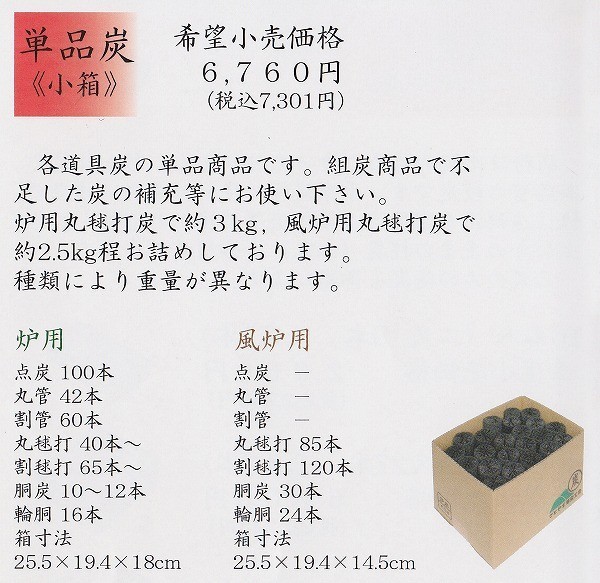 単品炭
《小箱》
希望小売価格
6,760円
(税込7,301円)
各道具炭の単品商品です。組炭商品で不
足した炭の補充等にお使い下さい。
炉用丸毬打炭で約3kg,風炉用丸毬打炭で
約2.5kg程お詰めしております。
種類により重量が異なります。
炉用
点炭 100本
丸管 42本
割管 60本
丸毬打 40本～
割毬打 65本～
胴炭 10～12本
輪胴 16本
箱寸法
25.5×19.4×18cm
風炉用
点炭 －
丸管 －
割管 －
丸毬打 85本
割毬打 120本
胴炭 30本
輪胴 24本
箱寸法
25.5×19.4×14.5cm